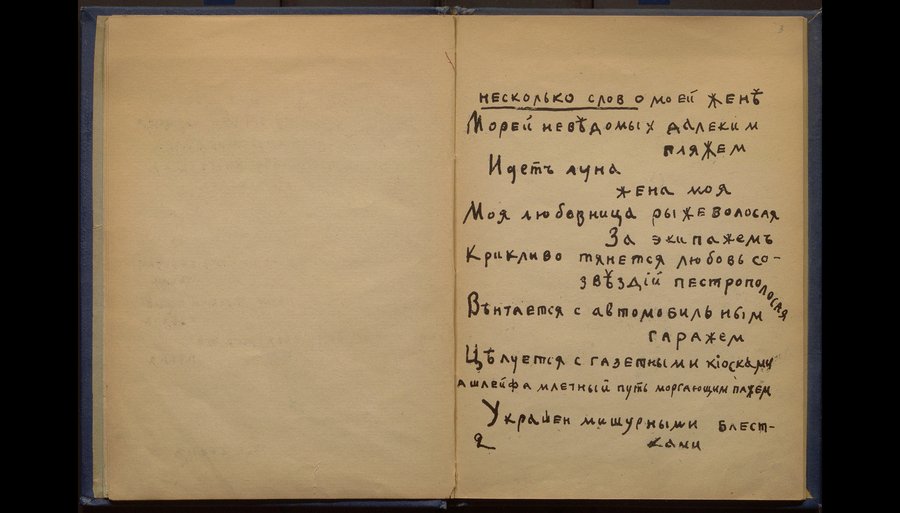 3
несколько слов о моей женѣ
Морей невѣдомых далеким
пляжем
Идетъ луна
жена моя
Моя любовница рыжеволосая
За экипажемъ
Крикливо тянется любовь со-
звѣздій пестрополосая
Вѣнчается с автомобильным
гаражем
Цѣлуется с газетными кіосками
а шлейфа млечный путь моргающим пажем
Украшен мишурными блест-
ками